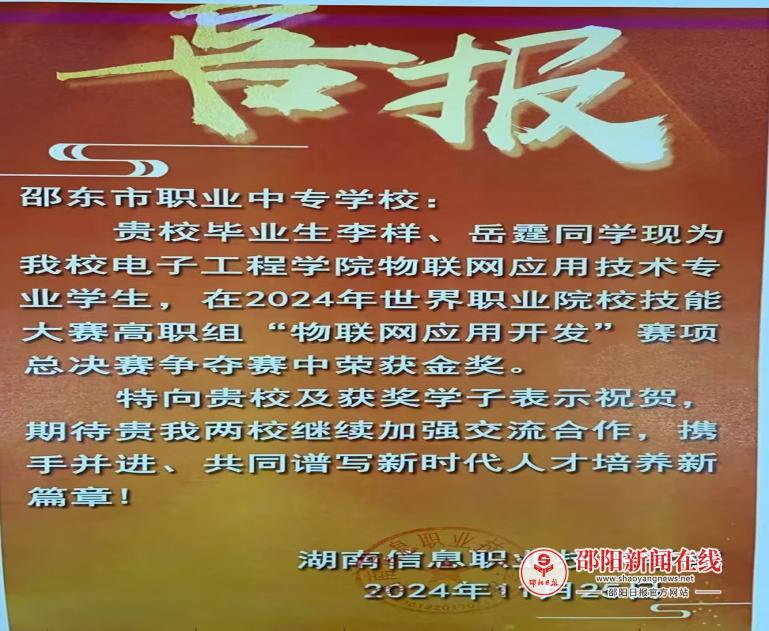 喜报
邵东市职业中专学校：
贵校毕业生李样、岳霆同学现为
我校电子工程学院物联网应用技术专
业学生，在2024年世界职业院校技能
大赛高职组“物联网应用开发”赛项
总决赛争夺赛中荣获金奖。
特向贵校及获奖学子表示祝贺，
期待贵我两校继续加强交流合作，携
手并进、共同谱写新时代人才培养新
篇章！
湖南信息职业
2024年11月26日
邵阳新闻在线
www.shaoyangnews.net
邵阳日报官方网站
邵阳日报